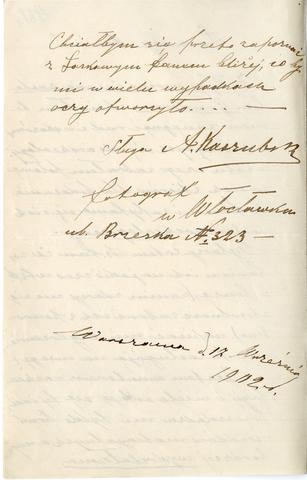 Chciałbym się przeto zapoznać
z Szanownym Panem bliżej, co by
mi w wielu wypadkach
oczy otworzyło. . . . —
Sługa A. Kaszubski
fotograf
w Włocławku
ul. Brzeska № 323 —
Warszawa d. 12 Września
1902 r.